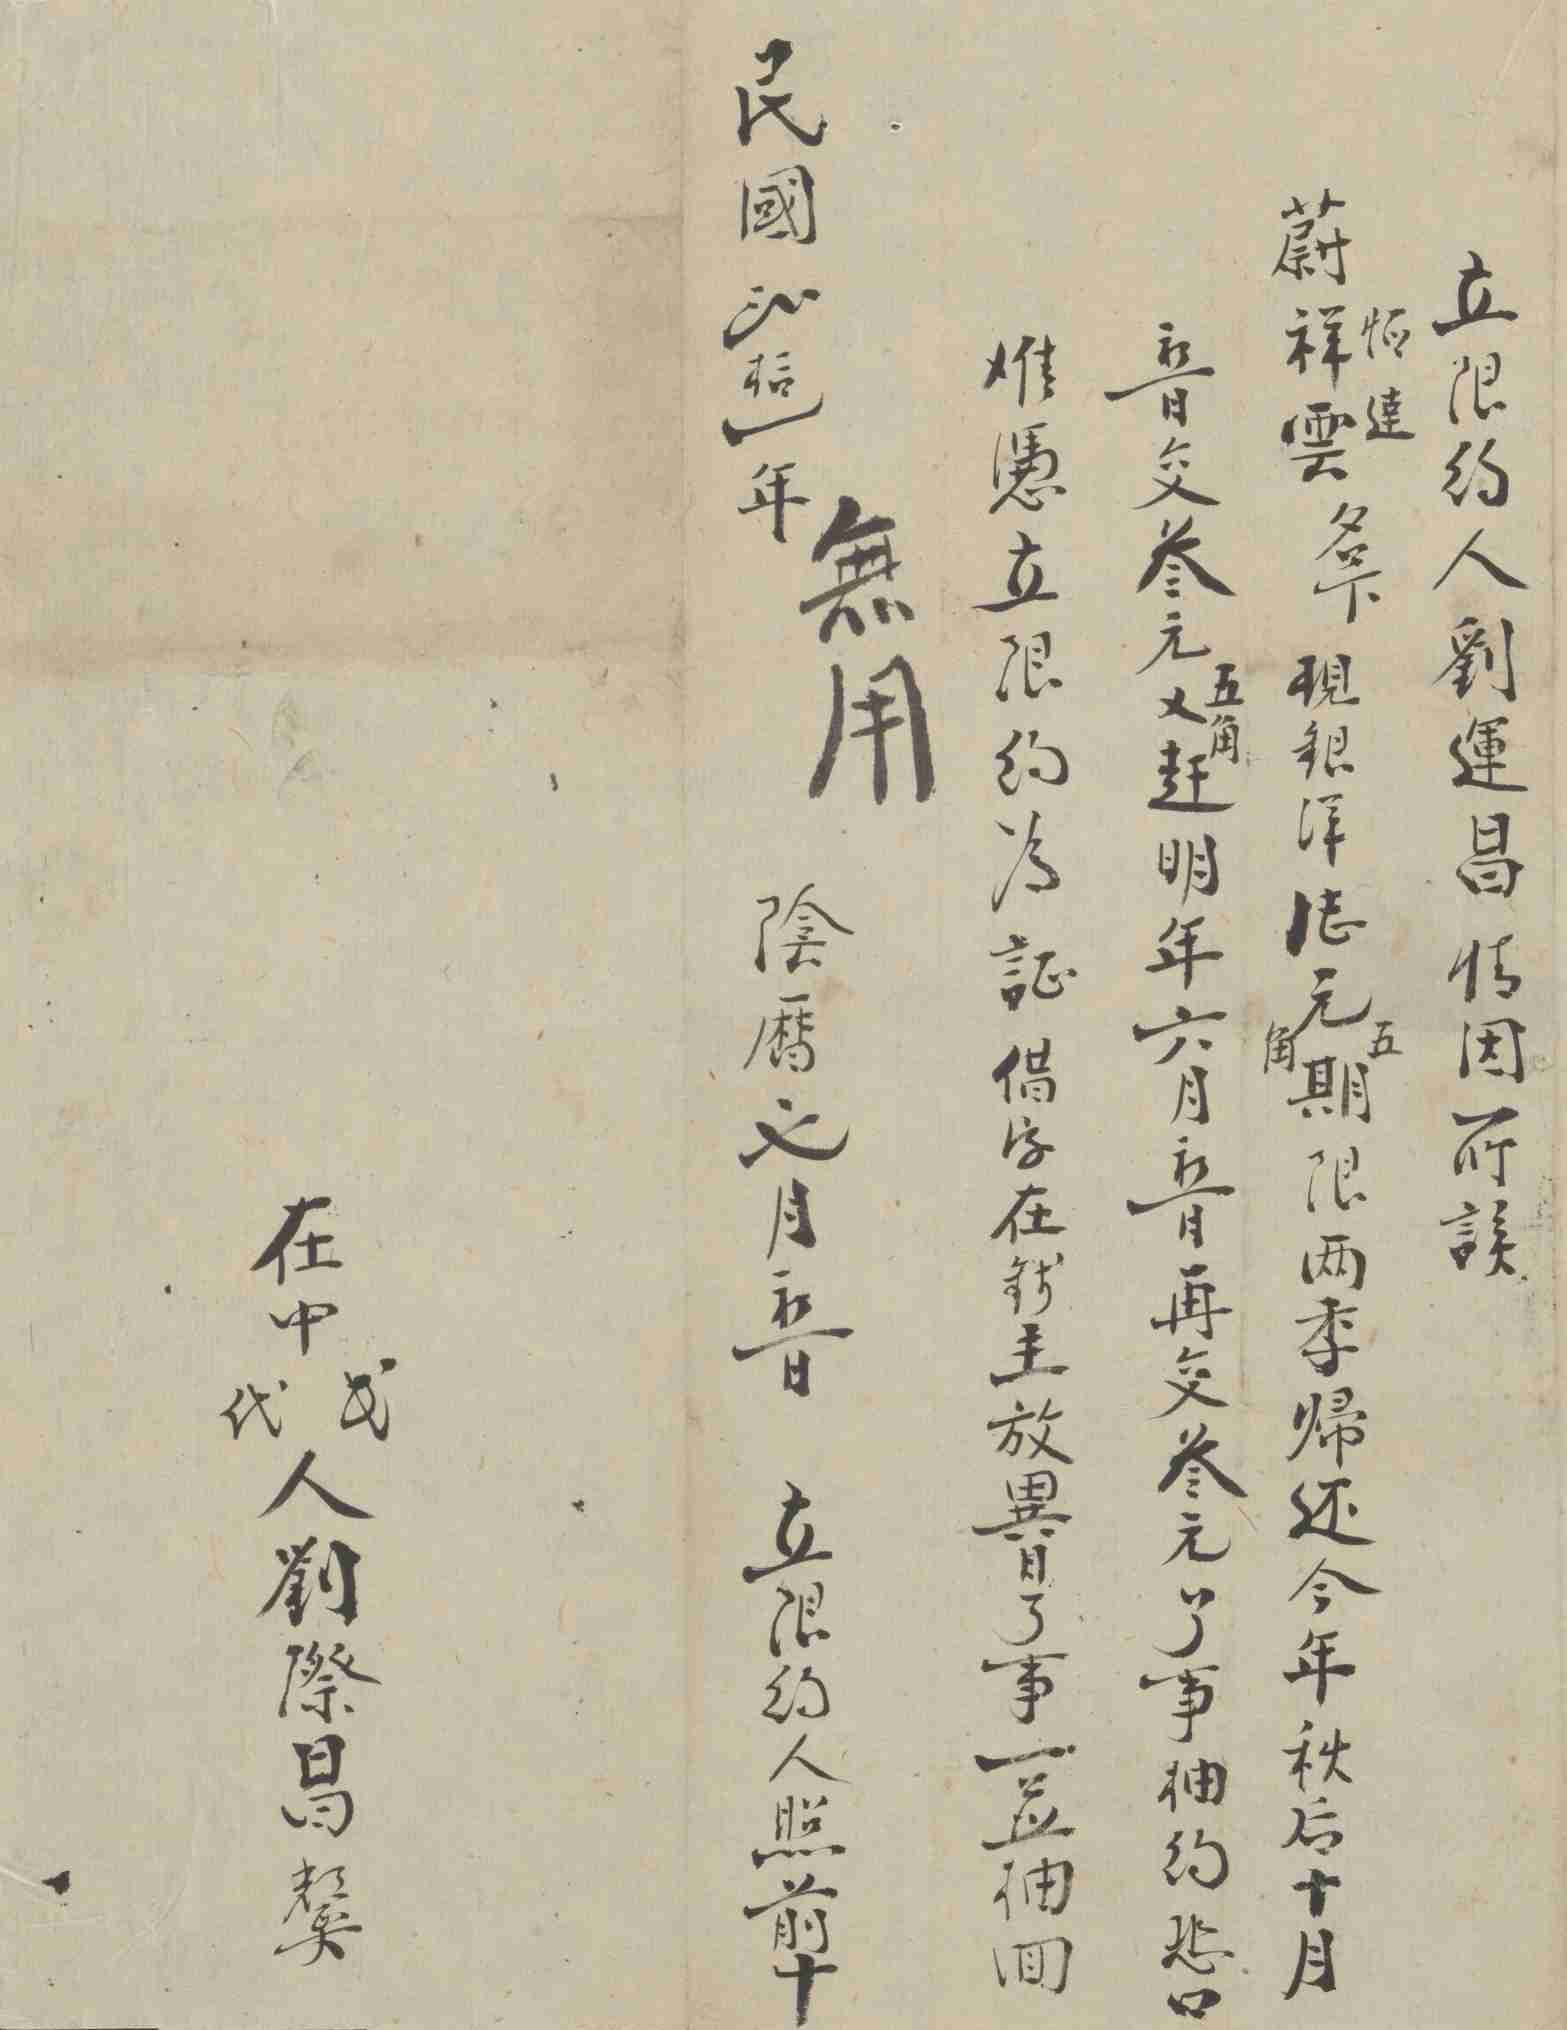 立限約人劉運昌情因所該
恆達
蔚祥雲名下現銀洋陆元五角期限两季帰还今年秋后十月
初一日交叁元五角又赶明年六月初一日再交叁元了事抽約恐口
难憑立限約为証借字在錢主放異日了事一並抽回
無用
民國 年 陰曆七月初一日 立限約人照前十
在中
代人劉際昌